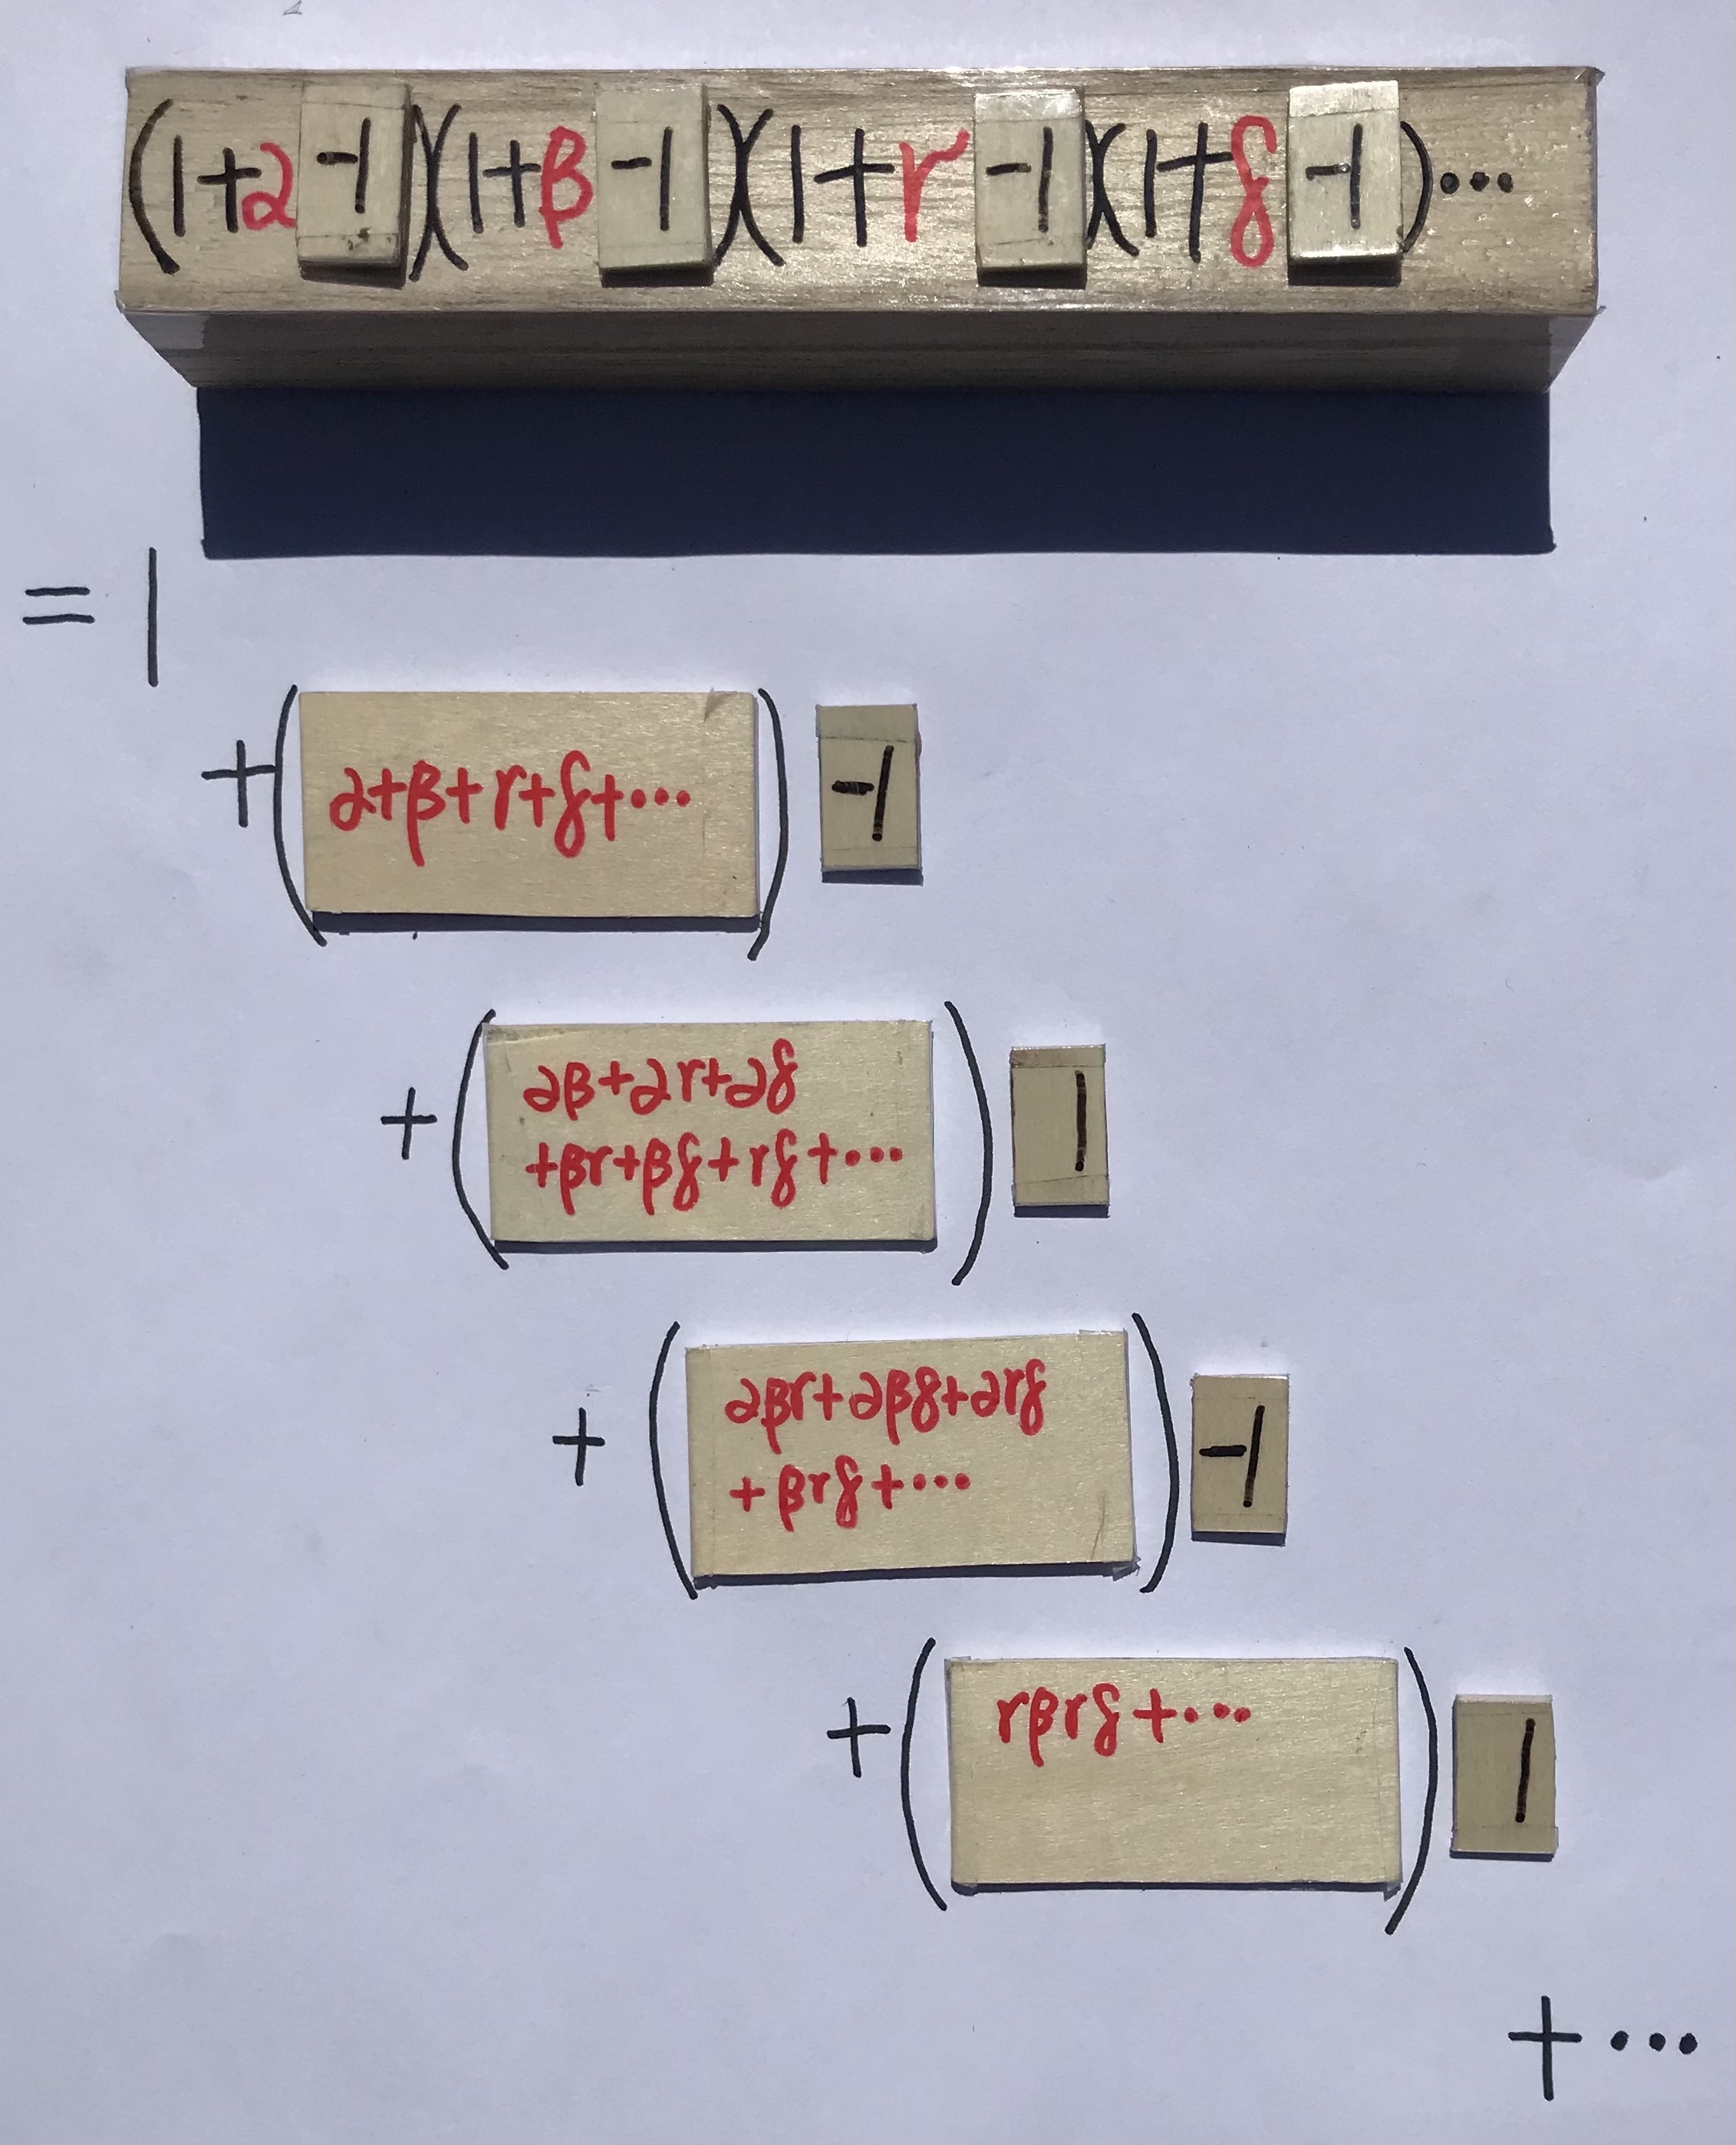 (1+α -1)(1+β -1)(1+γ -1)(1+δ -1)•••
= 1
+( α+β+γ+δ+••• ) -1
+( αβ+αγ+αδ
+βγ+βδ+γδ+••• ) 1
+( αβγ+αβδ+αγδ
+βγδ+••• ) -1
+( γβγδ+••• ) 1
+•••